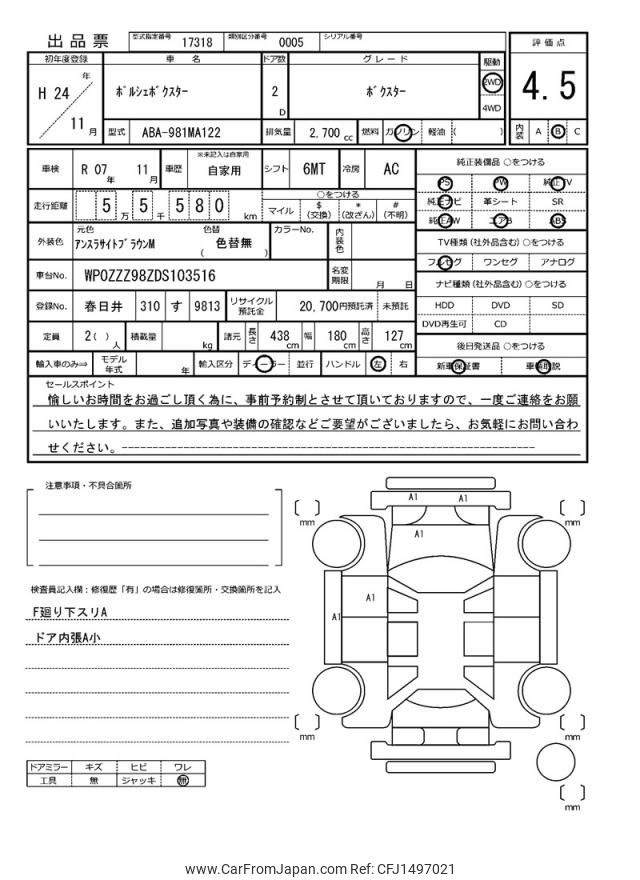 出品票 型式指定番号 17318 類別区分番号 0005 シリアル番号
評価点
初年度登録 車名 ドア数 グレード 駆動
H 24 年 ポルシェボクスター 2 D ボクスター 2WD 4.5
4WD
11 月 型式 ABA-981MA122 排気量 2,700 cc 燃料 ガソリン 軽油 ( ) 内装 A B C
車検 R 07 年 11 月 車歴 ※未記入は自家用 自家用 シフト 6MT 冷房 AC
純正装備品 ○をつける
PS PW 純正TV
純正ナビ 革シート SR
純正AW エアB ABS
走行距離 5 万 5 千 5 8 0 km
○をつける
マイル $ (交換) * (改ざん) # (不明)
外装色 元色 アンスラサイトブラウンM 色替 ( 色替無 ) カラーNo. 内装色
TV種類 (社外品含む) ○をつける
フルセグ ワンセグ アナログ
車台No. WP0ZZZ98ZDS103516 名変期限 月 日
ナビ種類 (社外品含む) ○をつける
HDD DVD SD
DVD再生可 CD
登録No. 春日井 310 す 9813 リサイクル預託金 20,700円預託済 未預託
定員 2 ( ) 人 積載量 kg 諸元 長さ 438 cm 幅 180 cm 高さ 127 cm
後日発送品 ○をつける
新車保証書 車輌取説
輸入車のみ⇒ モデル年式 年 輸入区分 ディーラー 並行 ハンドル 左 右
セールスポイント
愉しいお時間をお過ごし頂く為に、事前予約制とさせて頂いておりますので、一度ご連絡をお願
いいたします。また、追加写真や装備の確認などご要望がございましたら、お気軽にお問い合わ
せください。------------------------------------------------------------
注意事項・不具合箇所
検査員記入欄：修復歴「有」の場合は修復箇所・交換箇所を記入
F廻り下スリA
ドア内張A小
A1 A1
A1
A1
A1
mm mm
mm mm
mm
ドアミラー キズ ヒビ ワレ
工具 無 ジャッキ 無
www.CarFromJapan.com Ref: CFJ1497021